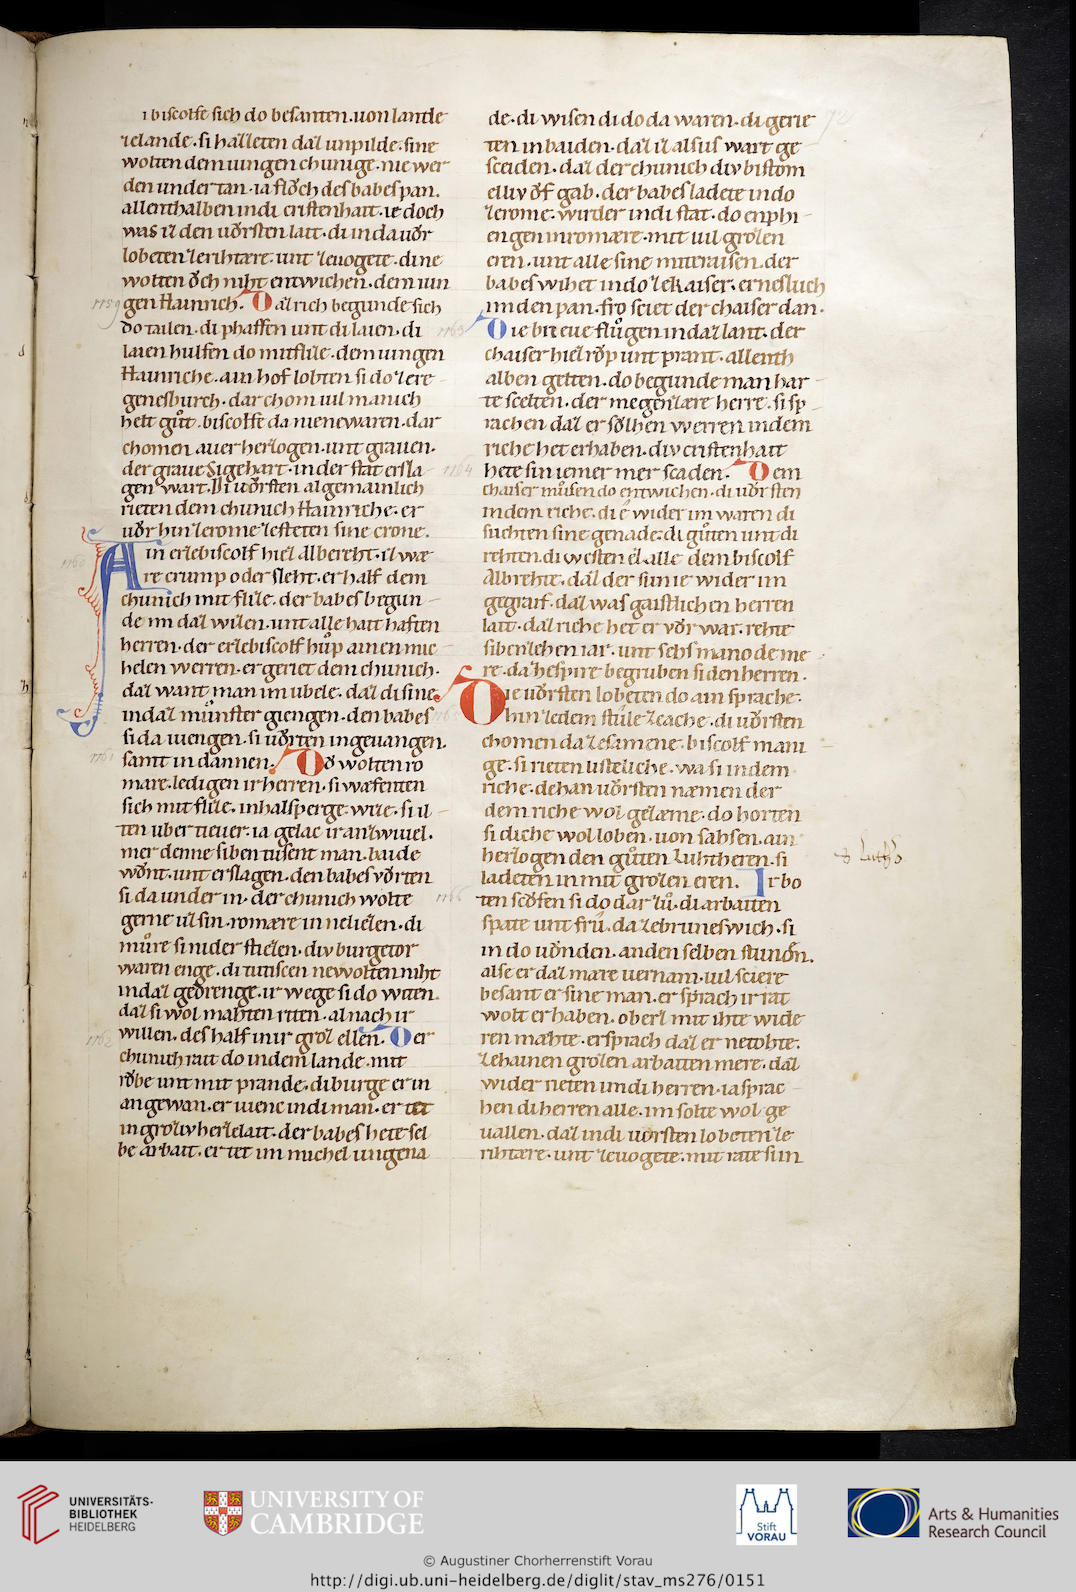 i biscolfe sich do besanten. uon lante
ze lande. si halzeten daz unpilde. sine
wolten dem iungen chunige. nie wer
den undertan. ia floͮch des babes pan.
allenthalben in di cristenhait. ie doch
was iz den uoͮrsten lait. di in da uoͮr
lobeten ze rihtære. unt ze uogete. di ne
wolten oͮch niht entwichen. dem iun
gen Hainrich. Daz rich begunde sich
do tailen. di phaffen unt di laien. di
laien hulfen do mit flize. dem iungen
Hainriche. ain hof lobten si do ze re
genesburch. dar chom uil manich
helt guͦt. biscolfe da niene waren. dar
chomen. auer herzogen. unt grauen.
der graue Sigehart. in der stat ersla
gen wart. Di uoͮrsten algemainlich
rieten dem chunich Hainriche. er
uoͮr hin ze rome ze steten sine crone.
Ain erzebiscolf hiez Albereht. iz wæ
re crump oder sleht. er half dem
chunich mit flize. der babes begun
de im daz wizen. unt alle hait haften
herren. der erzebiscolf huͦp ainen mic
helen werren. er geriet dem chunich.
daz want man im ubele. daz di sine
in daz muͦnster giengen. den babes
si da uiengen. si uoͮrten in geuangen.
samt in dannen. Doͮ wolten ro
mare. ledigen ir herren. si wafenten
sich mit flize. in halsperge wize. si il
ten uber tieuer. ia gelac ir an zwiuel.
mer denne siben tusent man. baide
woͮnt. unt erslagen. den babes voͮrten
si da under in. der chunich wolte
gerne uz sin. romære in ne liezen. di
muͦre si nider stiezen. div burgetor
waren enge. di tutiscen ne wolten niht
in daz gedrenge. ir wege si do witen.
daz si wol mahten riten. al nach ir
willen. des half in ir groz ellen. Der
chunich rait do in dem lande. mit
roͮbe unt mit prande. di burge er in
an gewan. er uienc in di man. er tet
in groziv herzelait. der babes hete sel
be arbait. er tet im michel ungena
de. di wisen di do da waren. di gerie
ten in baiden. daz iz alsus wart ge
sceiden. daz der chunich div bistom
elliv oͮf gab. der babes ladete in do
ze rome. wider in di stat. do enphi
engen in romære. mit uil grozen
eren. unt alle sine miteraisen. der
babes wihet in do ze kaiser. er nesluch
im den pan. fro sciet der chaiser dan.
Die brieue fluͦgen in daz lant. der
chaiser hiez roͮp unt prant. allenth
alben gelten. do begunde man har
te scelten. der megenzære herre. si sp
rachen daz er solhen werren in dem
riche het erhaben. div cristenhait
hete sin iemer mer scaden. Dem
chaiser muͦsen do entwichen. di uoͮrsten
in dem riche. di e wider im waren di
suchten sine genade. di guͦten unt di
rehten. di westen ez alle dem biscolf
Albrehte. daz der sun ie wider im
gegraif. daz was gaistlichen herren
lait. daz riche het er voͮr war. rehte
sibenzehen iar. unt sehs manode me
re. da ze spire begruben si den herren.
Die uoͮrsten lobeten do ain sprache.
hin ze dem stuͦle ze ache. di uoͮrsten
chomen da zesamene. biscolf mani
ge. si rieten listecliche. wa si in dem
riche. dehan uoͮrsten næmen der
dem riche wol gezæme. do horten
si diche wol loben. uon sahsen. ain
herzogen den guͦten Luhtheren. si
ladeten in mit grozen eren. Ir bo
ten scoͮfen si do dar zuͦ. di arbaiten
spate unt fruͦ. da ze bruneswich. si
in do uoͮnden. an den selben stunden.
alse er daz mare uernam. uil sciere
besant er sine man. er sprach ir rat
wolt er haben. ob erz mit ihte wide
ren mahte. er sprach daz er ne tohte.
ze hainen grozen arbaiten mere. daz
wider rieten im di herren. ia sprac
hen di herren alle. im solte wol ge
uallen. daz in di uoͮrsten lobeten ze
rihtære. unt ze uogete. mit rate sin
72
1159
1160
1161
1162
1163
1164
1165
1166
UNIVERSITÄTS-
BIBLIOTHEK
HEIDELBERG
UNIVERSITY OF
CAMBRIDGE
Stift
VORAU
Arts & Humanities
Research Council
© Augustiner Chorherrenstift Vorau
http://digi.ub.uni-heidelberg.de/diglit/stav_ms276/0151